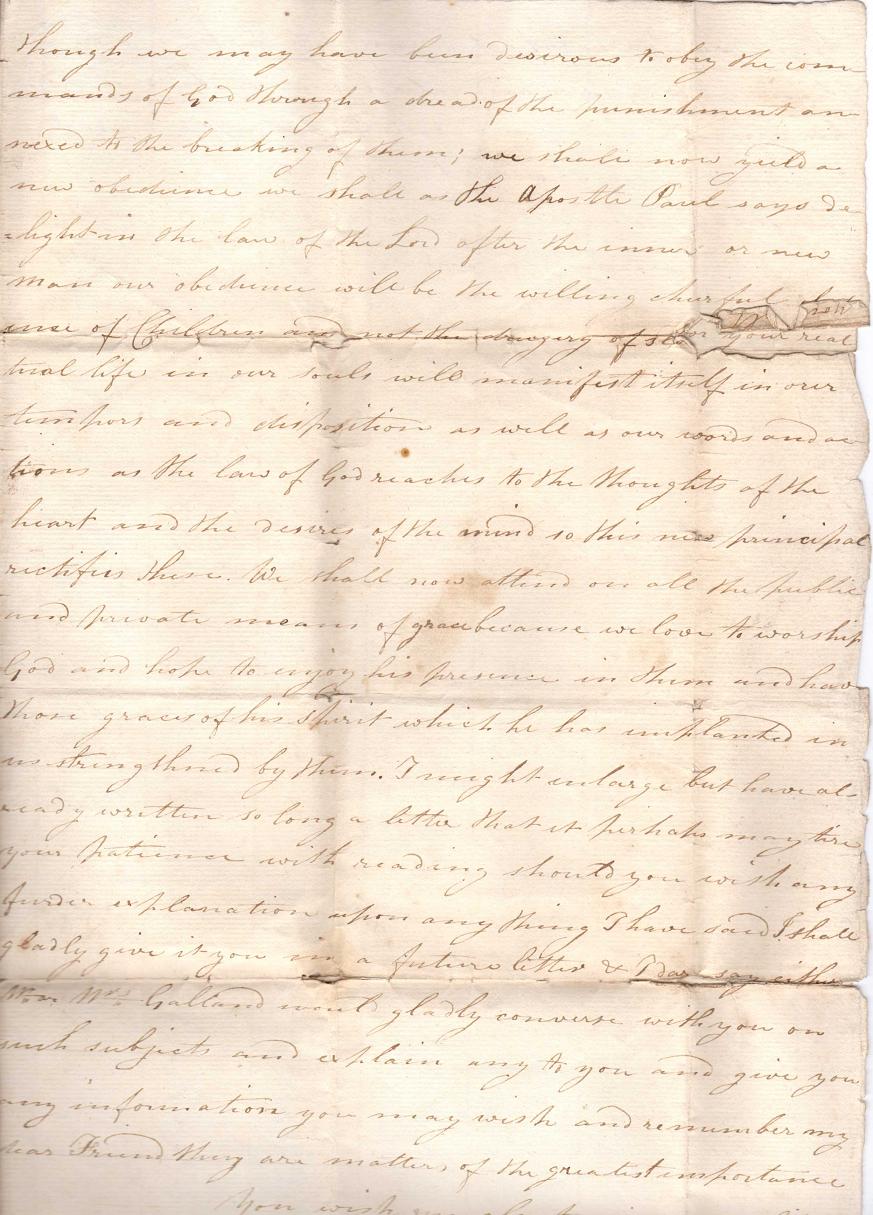 though we may have been desirous to obey the com-
mands of God through a dread of the punishment an-
nexed to the breaking of them; we shall now yield a
new obedience we shall as the Apostle Paul says de-
=light in the law of the Lord after the inner or new
man our obedience will be the willing cheerful
ence of Children and not the drugery of your real
tual life in our souls will manifest itself in our
tempers and disposition as well as our words and ac
tions as the law of God reaches to the thoughts of the
heart and the desires of the mind so this new principal
rectifies these. We shall now attend on all the public
and private means of grace because we love to worship
God and hope to enjoy his presence in them and have
those graces of his spirit which he has implanted in
us strengthned by them. I might enlarge but have al-
ready written so long a letter that it perhaps may tire
your patience with reading should you wish any
furder explanation upon any thing I have said I shall
gladly give it you in a future letter & I dar say either
Mr or Mrs Galland would gladly converse with you on
such subjects and explain any to you and give you
any information you may wish and remember my
dear Friend they are matters of the greatest importance
You wish